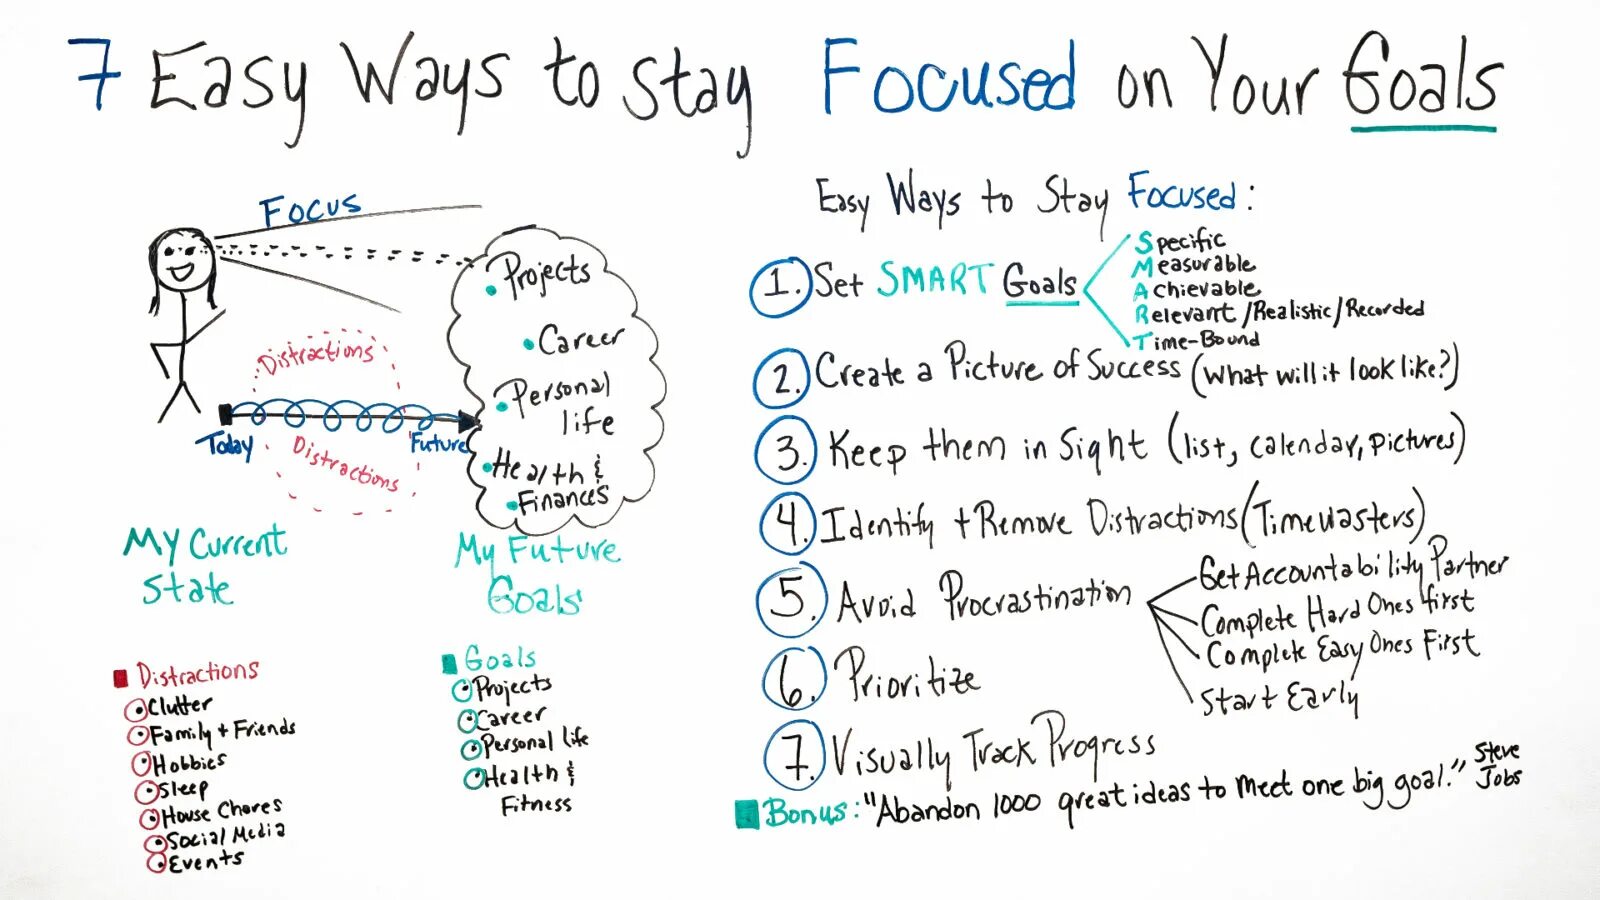 7 Easy Ways to Stay Focused on Your Goals
Focus
Distractions
Distractions
Today
Future
Projects
Career
Personal
life
Health &
Finances
My Current
State
My Future
Goals
Distractions
Clutter
Family + Friends
Hobbies
Sleep
House Chores
Social Media
Events
Goals
Projects
Career
Personal life
Health &
Fitness
Easy Ways to Stay Focused:
1. Set SMART Goals
Specific
Measurable
Achievable
Relevant/Realistic/Recorded
Time-Bound
2. Create a Picture of Success (What will it look like?)
3. Keep them in Sight (list, calendar, pictures)
4. Identify + Remove Distractions (Timewasters)
5. Avoid Procrastination
Get Accountability Partner
Complete Hard Ones first
Complete Easy Ones First
Start Early
6. Prioritize
7. Visually Track Progress
Bonus: "Abandon 1000 great ideas to meet one big goal." Steve
Jobs